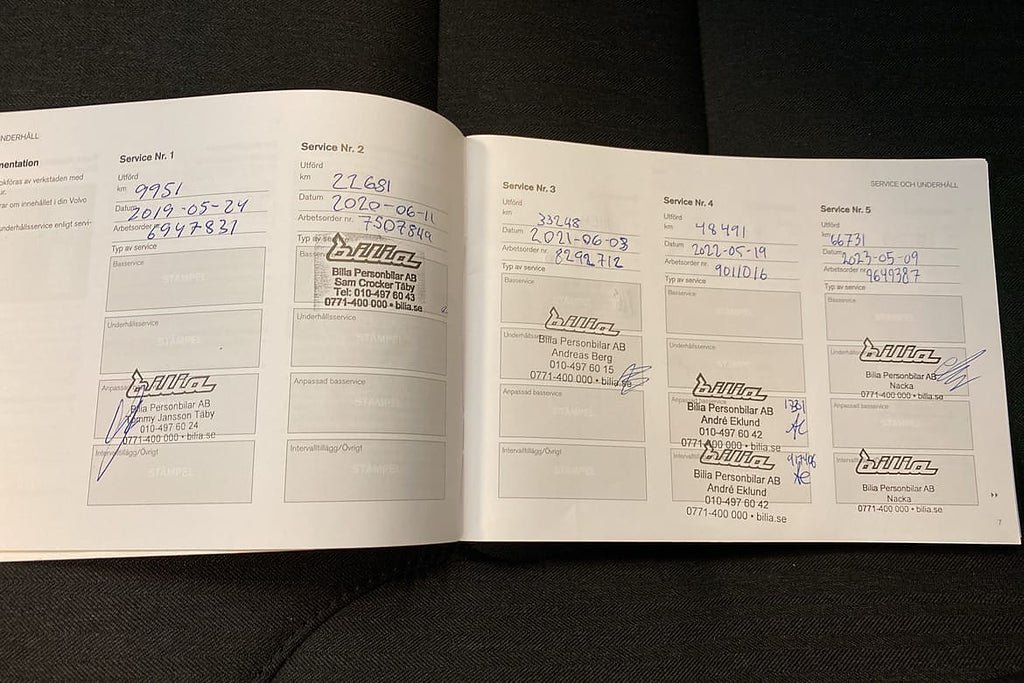 UNDERHÅLL
mentation
okföras av verkstaden med
ur.
rar om innehållet i din Volvo
underhållsservice enligt servi-
Service Nr. 1
Utförd
km 9951
Datum 2019-05-24
Arbetsorder 6947831
Typ av service
Basservice
STÄMPEL
Underhållsservice
STÄMPEL
Anpassad
bilia
Bilia Personbilar AB
Jansson Täby
010-497 60 24
0771-400 000 • bilia.se
Intervalltillägg/Övrigt
STÄMPEL
Service Nr. 2
Utförd
km 22681
Datum 2020-06-11
Arbetsorder nr. 7507849
Typ av se
Bass
bilia
Bilia Personbilar AB
Sam Crocker Täby
Tel: 010-497 60 43
0771-400 000 • bilia.se
Underhållsservice
STÄMPEL
Anpassad basservice
STÄMPEL
Intervalltillägg/Övrigt
STÄMPEL
Service Nr. 3
Utförd
km 33248
Datum 2021-06-03
Arbetsorder nr. 8292712
Typ av service
Basservice
bilia
Underhållsservice
Bilia Personbilar AB
Andreas Berg
010-497 60 15
0771-400 000 • bilia.se
Anpassad basservice
STÄMPEL
Intervalltillägg/Övrigt
STÄMPEL
Service Nr. 4
Utförd
km 48491
Datum 2022-05-19
Arbetsorder nr. 9011016
Typ av service
Basservice
STÄMPEL
Underhållsservice
STÄMPEL
bilia
Anpassad basservice
Bilia Personbilar AB
André Eklund
010-497 60 42
0771-400 000 • bilia.se
bilia
Bilia Personbilar AB
André Eklund
010-497 60 42
0771-400 000 • bilia.se
SERVICE OCH UNDERHÅLL
Service Nr. 5
Utförd
km 66731
Datum 2023-05-09
Arbetsorder nr 9649387
Typ av service
Basservice
STÄMPEL
bilia
Bilia Personbilar AB
Nacka
0771-400 000 • bilia.se
Anpassad basservice
STÄMPEL
bilia
Bilia Personbilar AB
Nacka
0771-400 000 • bilia.se
7